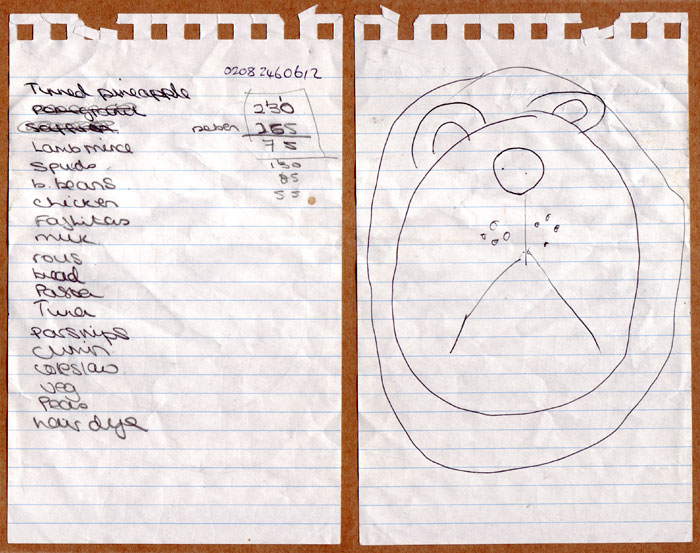 02082460612
Tinned pineapple
230
265
Lamb mince
75
Spuds
130
b.beans
85
chicken
55
Fajhitas
milk
rolls
bread
Pasta
Tuna
parsnips
Cumin
coleslaw
veg
Peas
hair dye